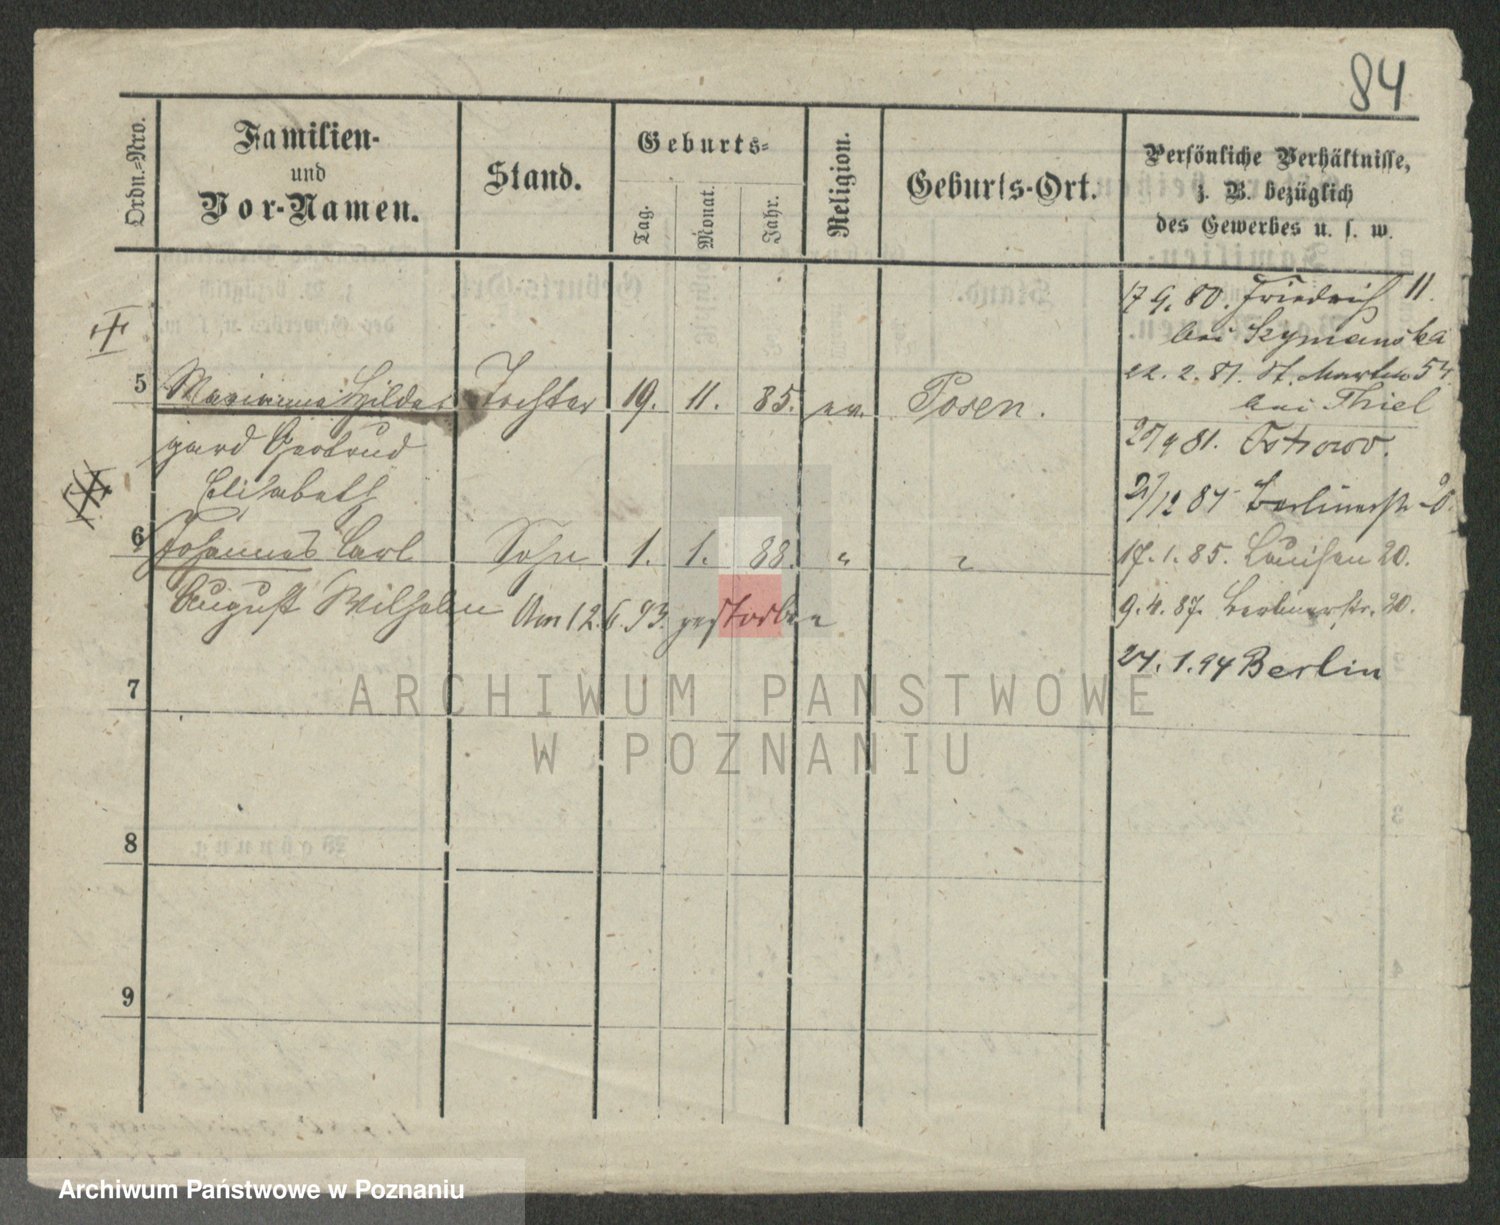 84
Ordn.-Nro.
Familien-
und
Vor-Namen.
Stand.
Geburts-
Tag.
Monat.
Jahr.
Religion.
Geburts-Ort.
Persönliche Verhältnisse,
z. B. bezüglich
des Gewerbes u. s. w.
17 9. 80. Friedrich 11.
bei Szymanska
22. 2. 81. St. Martin 54.
bei Thiel
5 Marianna Hilde- Tochter 19. 11. 85. ev. Posen.
gard Gertrud
Elisabeth
9 81. Ostrowo.
Berlinerstr 20.
6 Johannes Carl Sohn 1. 1. 88. " "
17. 1. 85. Louisen 20.
August Wilhelm Am 12. 6. 93 gestorben
9. 4. 87. Berlinerstr. 20.
24. 1. 94 Berlin
7
8
9
ARCHIWUM PAŃSTWOWE
W POZNANIU
Archiwum Państwowe w Poznaniu